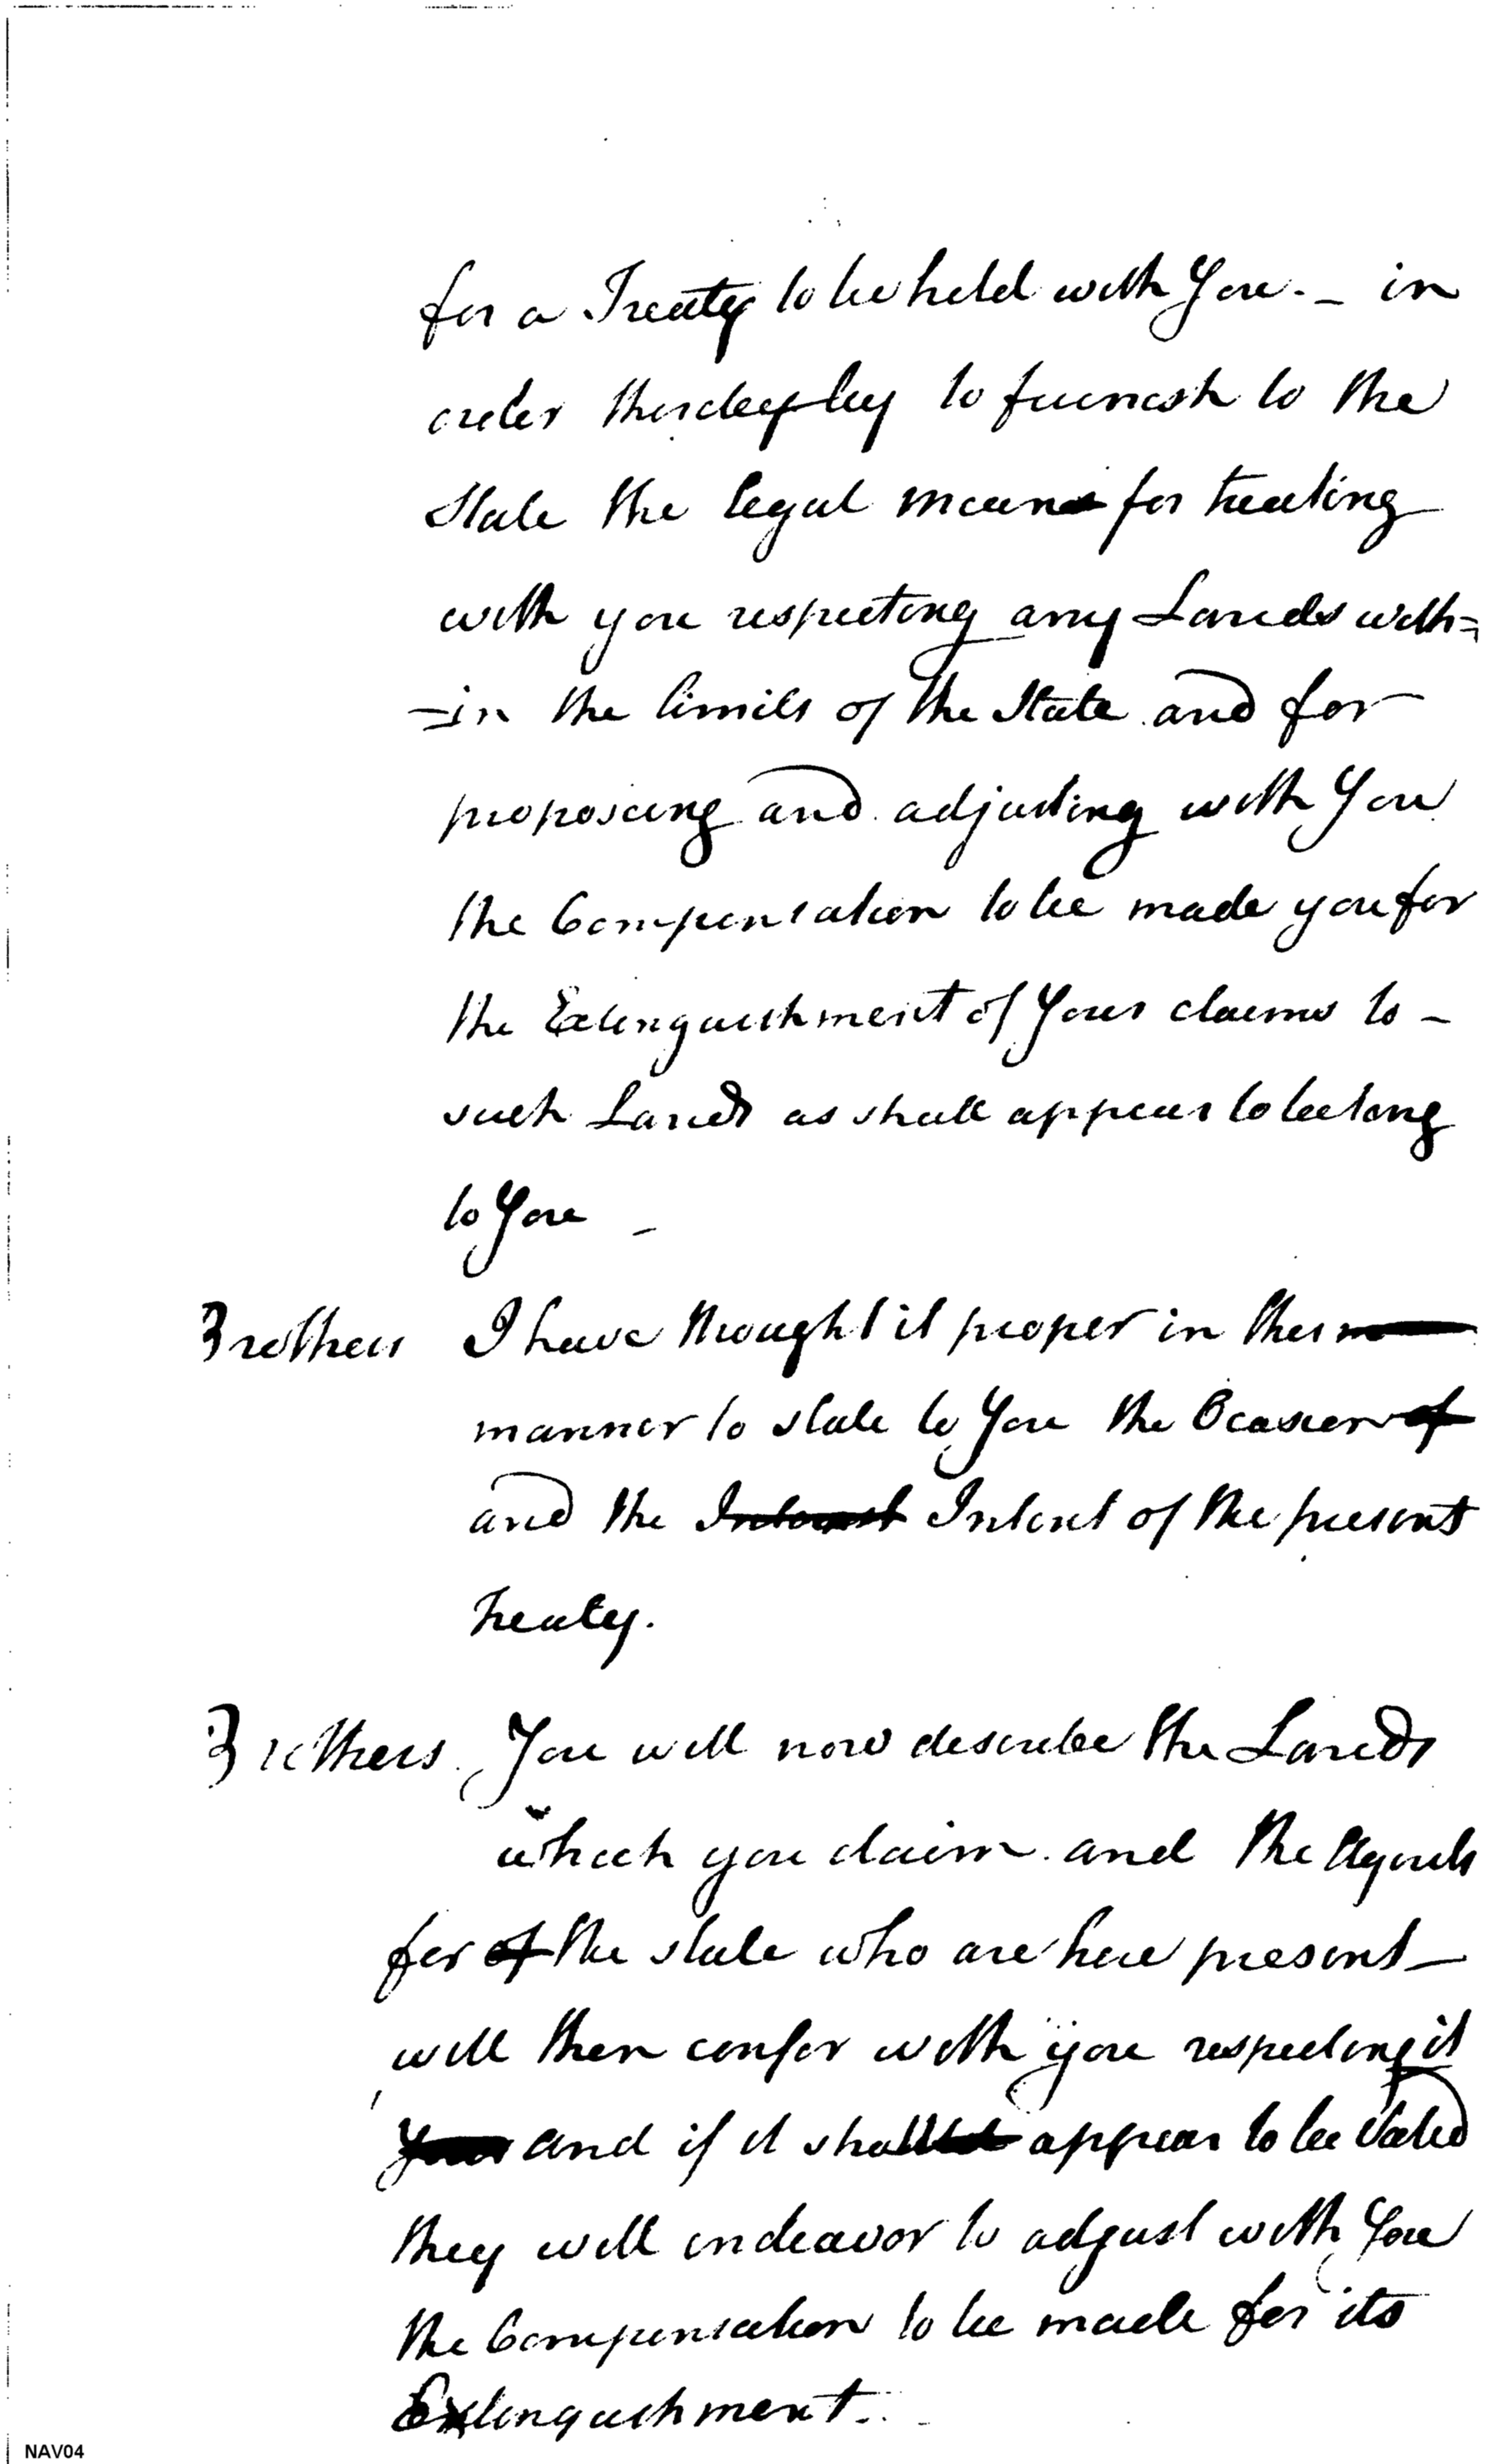 for a Treaty to be held with You. – in
order thereby to furnish to the
State the legal means for treating
with you respecting any Lands with=
=in the limits of the State and for
proposing and adjusting with You
the Compensation to be made you for
the Extinguishment of Your claims to –
such Lands as shall appear to belong
to You –
Brothers I have thought it proper in this
manner to state to You the Occasion of
and the Interest Intent of the present
Treaty.
Brothers. You will now describe the Lands
which you claim and the Agents
for of the state who are here present –
will then confer with you respecting it
Your and if it shall appear to be valid
they will endeavor to adjust with You
the Compensation to be made for its
Extinguishment..
NAV04